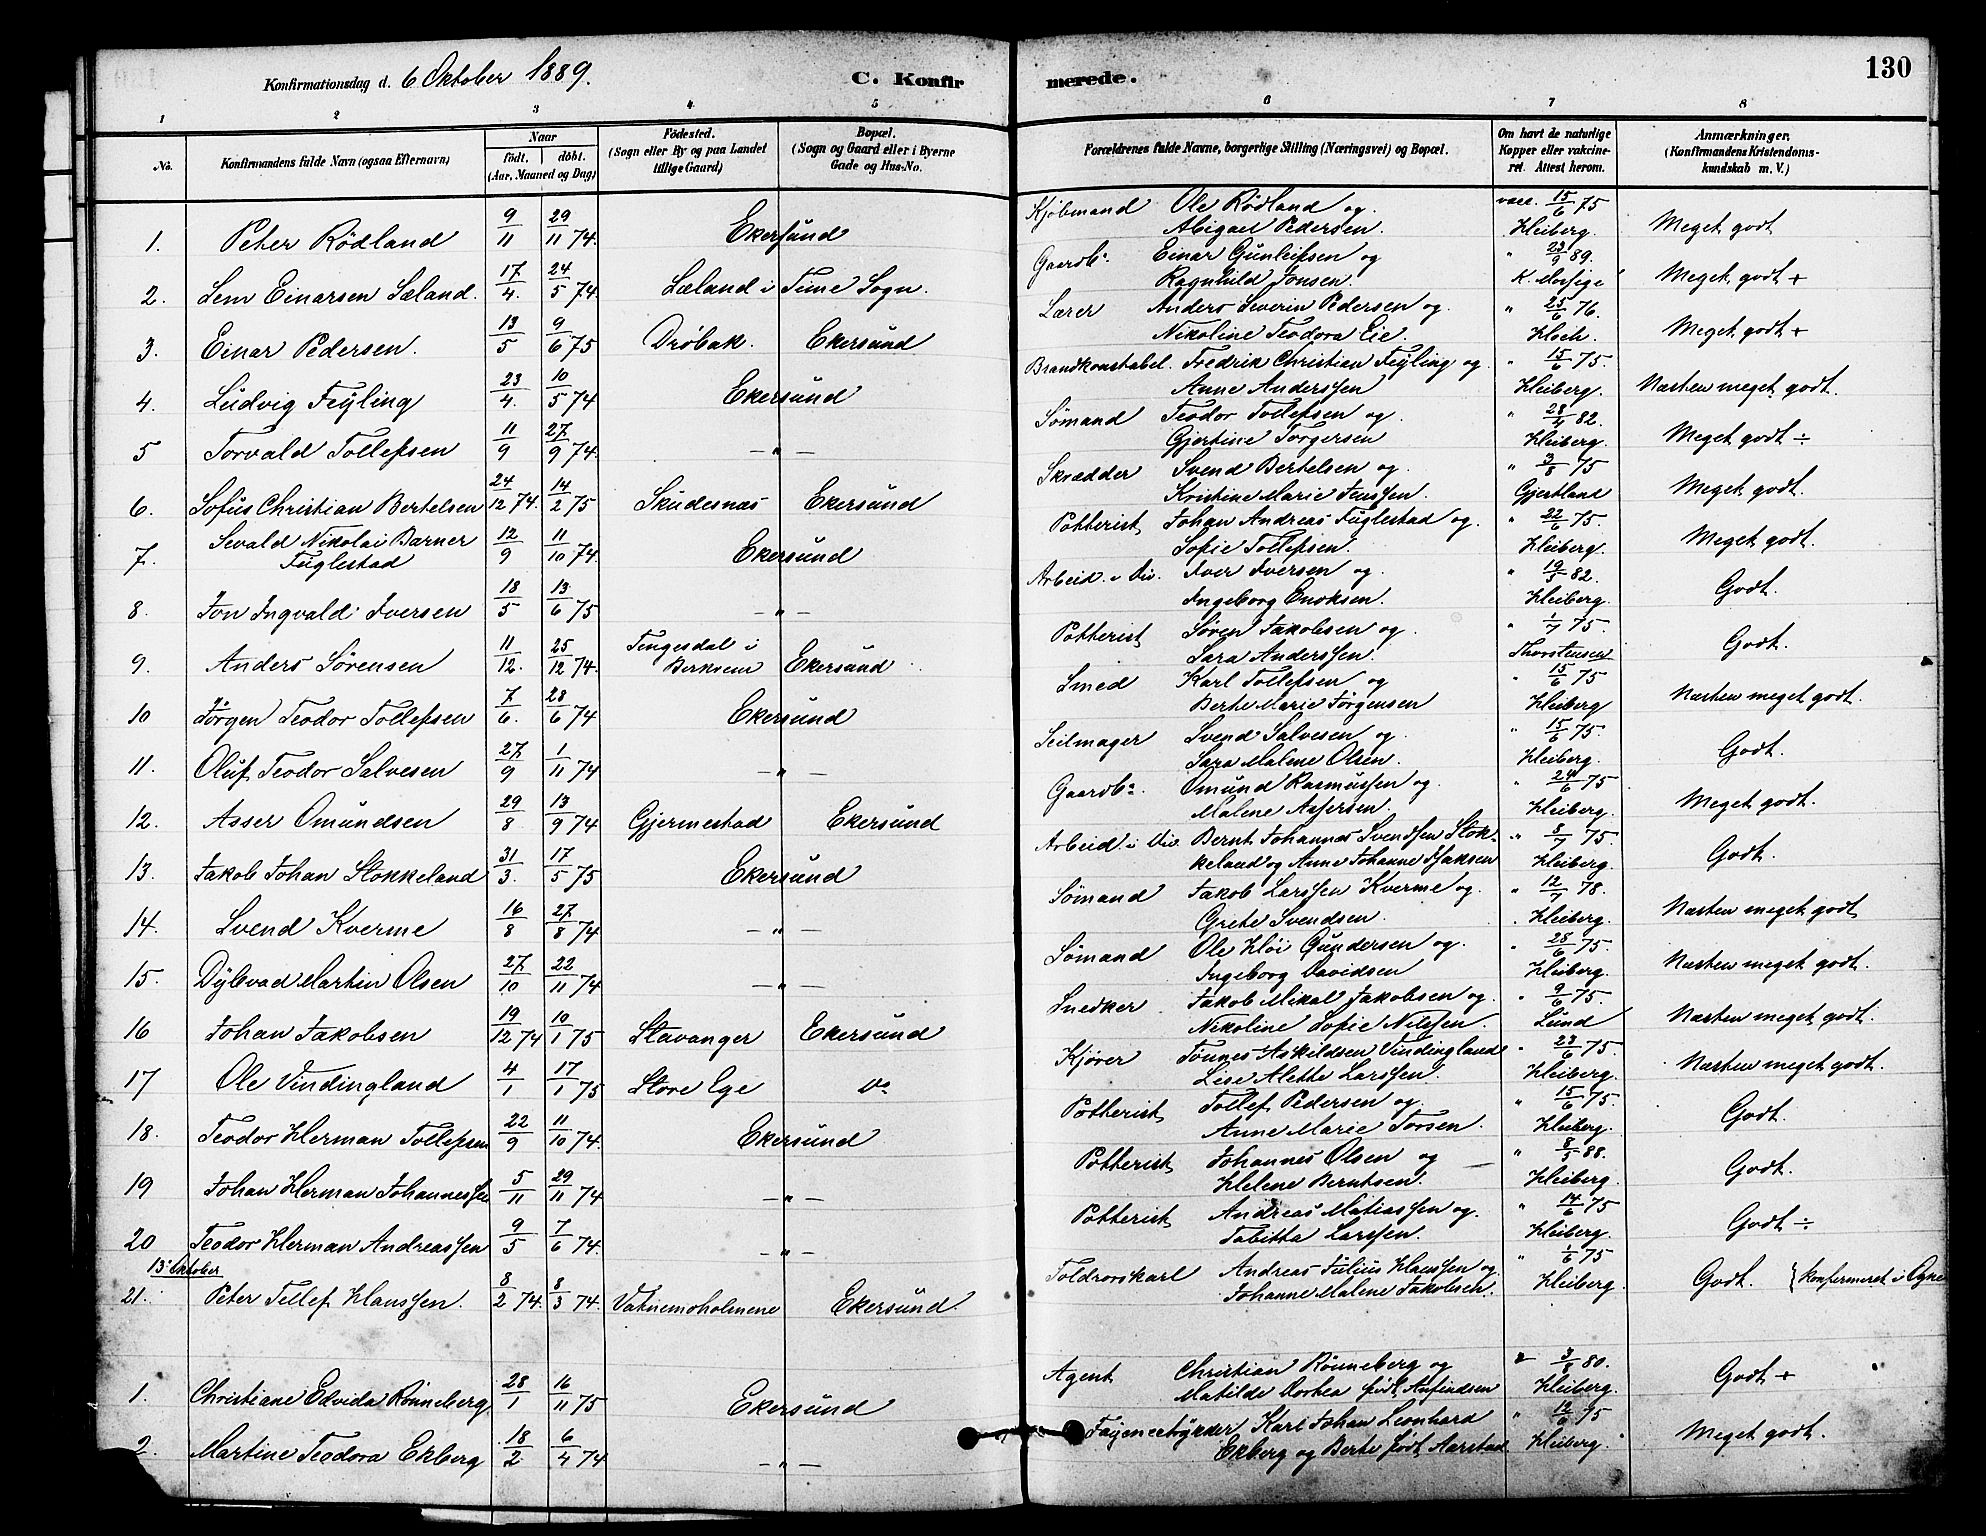 130
Konfirmationsdag d. 6 Oktober 1889.
C. Konfirmerede.
1 2 3 4 5 6 7 8
No.
Konfirmandens fulde Navn (ogsaa Efternavn)
Naar
födt. döbt.
(Aar, Maaned og Dag)
Födested.
(Sogn eller By og paa Landet
tillige Gaard)
Bopæl.
(Sogn og Gaard eller i Byerne
Gade og Hus-No.
Forældrenes fulde Navne, borgerlige Stilling (Næringsvei) og Bopæl.
Om havt de naturlige
Kopper eller vakcineret.
Attest herom.
Anmærkninger.
(Konfirmandens Kristendomskundskab
m. V.)
1. Peter Rödland 9/11 29/11 74. Ekersund Kjöbmand Ole Rödland og vacc. 15/6 75
Abigael Pedersen. Kleiberg. Meget godt
2. Sem Einarsen Sæland. 17/4. 24/5 74. Sæland i Time Sogn. Gaardbr. Einar Gunleifsen og " 23/9 89.
Ragnhild Jonsen. Meget godt +
3. Einar Pedersen. 13/5 9/6 75 Dröbak. Ekersund Lærer Anders Severin Pedersen og " 25/6 76.
Nikoline Teodora Eie. Koch. Meget godt +
4. Ludvig Feyling 23/4. 10/5 74 Ekersund Brandkonstabel. Fredrik Christian Feyling og " 15/6 75.
Anne Anderssen Kleiberg. Næsten meget godt.
5 Torvald Tollefsen 11/9 27/9 74. — " — Sömand Teodor Tollefsen og " 28/4 82.
Gjertine Torgersen Kleiberg. Meget godt ÷
6. Sofus Christian Bertelsen 24/12 74. 14/2 75 Skudesnæs Ekersund Skrædder Svend Bertelsen og " 3/8 75
Kristine Marie Jenssen. Gjertland Meget godt.
7. Sevald Nikolai Barner
Fuglestad 12/9 11/10 74. Ekersund Potterist Johan Andreas Fuglestad og " 22/6 75.
Sofie Tollefsen. Kleiberg. Meget godt.
8. Jon Ingvald Iversen 18/5 13/6 75 — " — Arbeid. i Div. Iver Iversen og " 19/5 82.
Ingeborg Enoksen. Kleiberg. Godt.
9. Anders Sörensen 11/12. 25/12 74. Tengesdal i
Berkrem Ekersund Potterist Sören Jakobsen og " 1/7 75.
Sara Anderssen. Thorstensen Godt.
10 Jörgen Teodor Tollefsen 7/6. 28/6 74 Ekersund Smed Karl Tollefsen og " 15/6 75
Berte Marie Jörgensen Kleiberg Næsten meget godt.
11. Oluf Teodor Salvesen 27/9 1/11 74 — " — Seilmager Svend Salvesen og " 15/6 75.
Sara Malene Olsen. Kleiberg. Godt.
12. Asser Omundsen 29/8 13/9 74 Gjermestad Ekersund Gaardbr. Omund Rasmussen og " 24/6 75
Malene Assersen. Kleiberg. Meget godt.
13. Jakob Johan Stokkeland 31/3. 17/5 75 Ekersund Arbeid. i Div. Bernt Johannes Svendsen Stok- " 8/7 75.
keland og Anne Johanne Isaksen Kleiberg. Godt.
14. Svend Kverme 16/8 27/8 74 — " — Sömand Jakob Larssen Kverme og " 12/7 78.
Grete Svendsen. Kleiberg. Næsten meget godt
15. Dybvad Martin Olsen 27/10 22/11 74 — " — Sömand Ole Klöi Gundersen og " 28/6 75.
Ingeborg Davidsen Kleiberg. Næsten meget godt.
16 Johan Jakobsen 19/12 74 10/1 75 Stavanger Ekersund Snedker Jakob Mikal Jakobsen og " 9/6 75.
Nikoline Sofie Nilssen. Lund Næsten meget godt.
17 Ole Vindingland 4/1 17/1 75 Store Ege do Kjörer Tönnes Askildsen Vindingland " 23/6 75.
Lise Alette Larssen. Kleiberg. Næsten meget godt.
18. Teodor Herman Tollefsen 22/9 11/10 74. Ekersund Potterist Tollef Pedersen og " 15/6 75.
Anne Marie Torsen. Kleiberg. Godt.
19 Johan Herman Johannessen 5/11 29/11 74 — " — Potterist Johannes Olsen og " 8/5 88.
Helene Berntsen. Kleiberg. Godt.
20 Teodor Herman Andreassen 9/5 7/6 74. — " — Potterist Andreas Matiassen og " 14/6 75
Tabitta Larssen. Kleiberg. Godt ÷
13de Oktober
21. Peter Tollef Hanssen. 8/2 74. 8/3 74. Vatnemoholmene Ekersund. Toldrorskarl Andreas Julius Hanssen og " 1/6 75
Johanne Malene Jakobsen. Kleiberg. Godt. {Konfirmeret i Ogne
1. Christiane Edvida Rönneberg 28/1 16/11 75 Ekersund Agent Christian Rönneberg og " 3/8 80.
Matilde Dortea född Anfindsen Kleiberg. Godt +
2. Martine Teodora Ekberg 18/2 6/4 74 — " — Fayencetrykker Karl Johan Leonhard " 12/6 75
Ekberg og Berte född Aarstad Kleiberg. Meget godt.